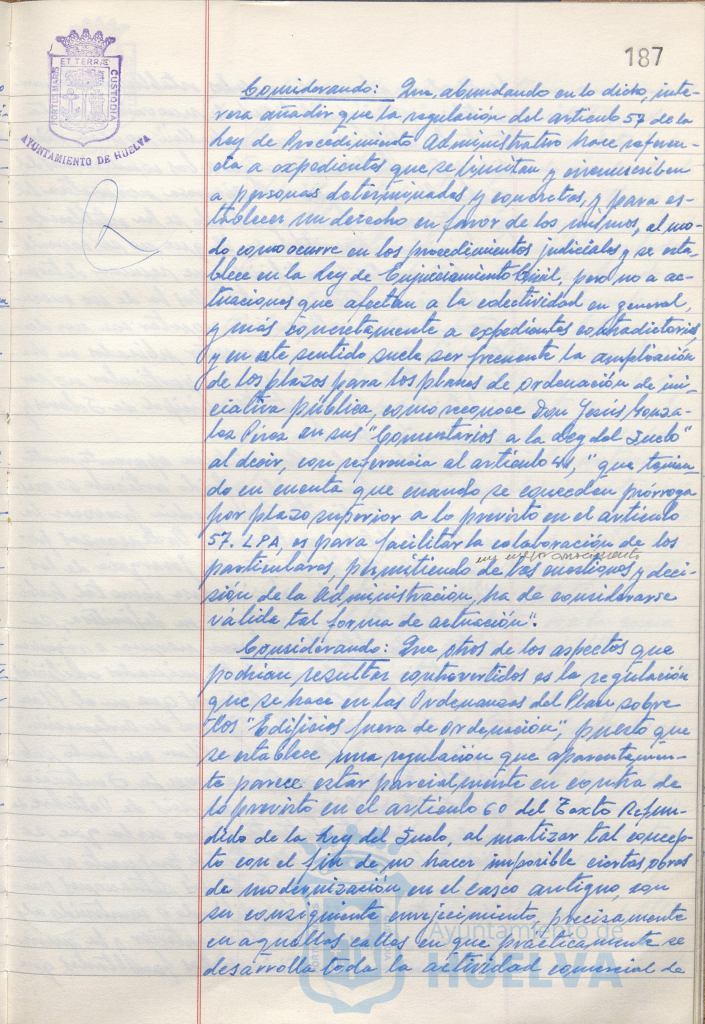 187
ET TERRÆ
PORTUS MARIS
CUSTODIA
AYUNTAMIENTO DE HUELVA
Considerando: Que, abundando en lo dicho, inte-
resa añadir que la regulación del articulo 57 de la
Ley de Procedimiento Administrativo hace referen-
cia a expedientes que se limitan y circunscriben
a personas determinadas y concretas, y para es-
tablecer un derecho en favor de los mismos, al mo-
do como ocurre en los procedimientos judiciales y se esta-
blece en la Ley de Enjuiciamiento Civil, pero no a ac-
tuaciones que afectan a la colectividad en general,
y más concretamente a expedientes contradictorios,
y en este sentido suele ser frecuente la ampliación
de los plazos para los planes de ordenación de ini-
ciativa pública, como reconoce Don Jesús Gonza-
lez Pérez en sus "Comentarios a la Ley del Suelo"
al decir, con referencia al artículo 41, "que tenien-
do en cuenta que cuando se conceden prórroga
por plazo superior a lo previsto en el artículo
57. LPA, es para facilitar la colaboración de los
particulares, permitiendo un mejor conocimiento de las cuestiones y deci-
sión de la Administración, ha de considerarse
válida tal forma de actuación".
Considerando: Que otros de los aspectos que
podrían resultar controvertidos es la regulación
que se hace en las Ordenanzas del Plan sobre
los "Edificios fuera de ordenación", puesto que
se establece una regulación que aparentemen-
te parece estar parcialmente en contra de
lo previsto en el artículo 60 del Texto Refun-
dido de la Ley del Suelo, al matizar tal concep-
to con el fin de no hacer imposible ciertas obras
de modernización en el casco antiguo, con
su consiguiente envejecimiento, precisamente
en aquellas calles en que prácticamente se
desarrolla toda la actividad comercial de
Ayuntamiento de
HUELVA